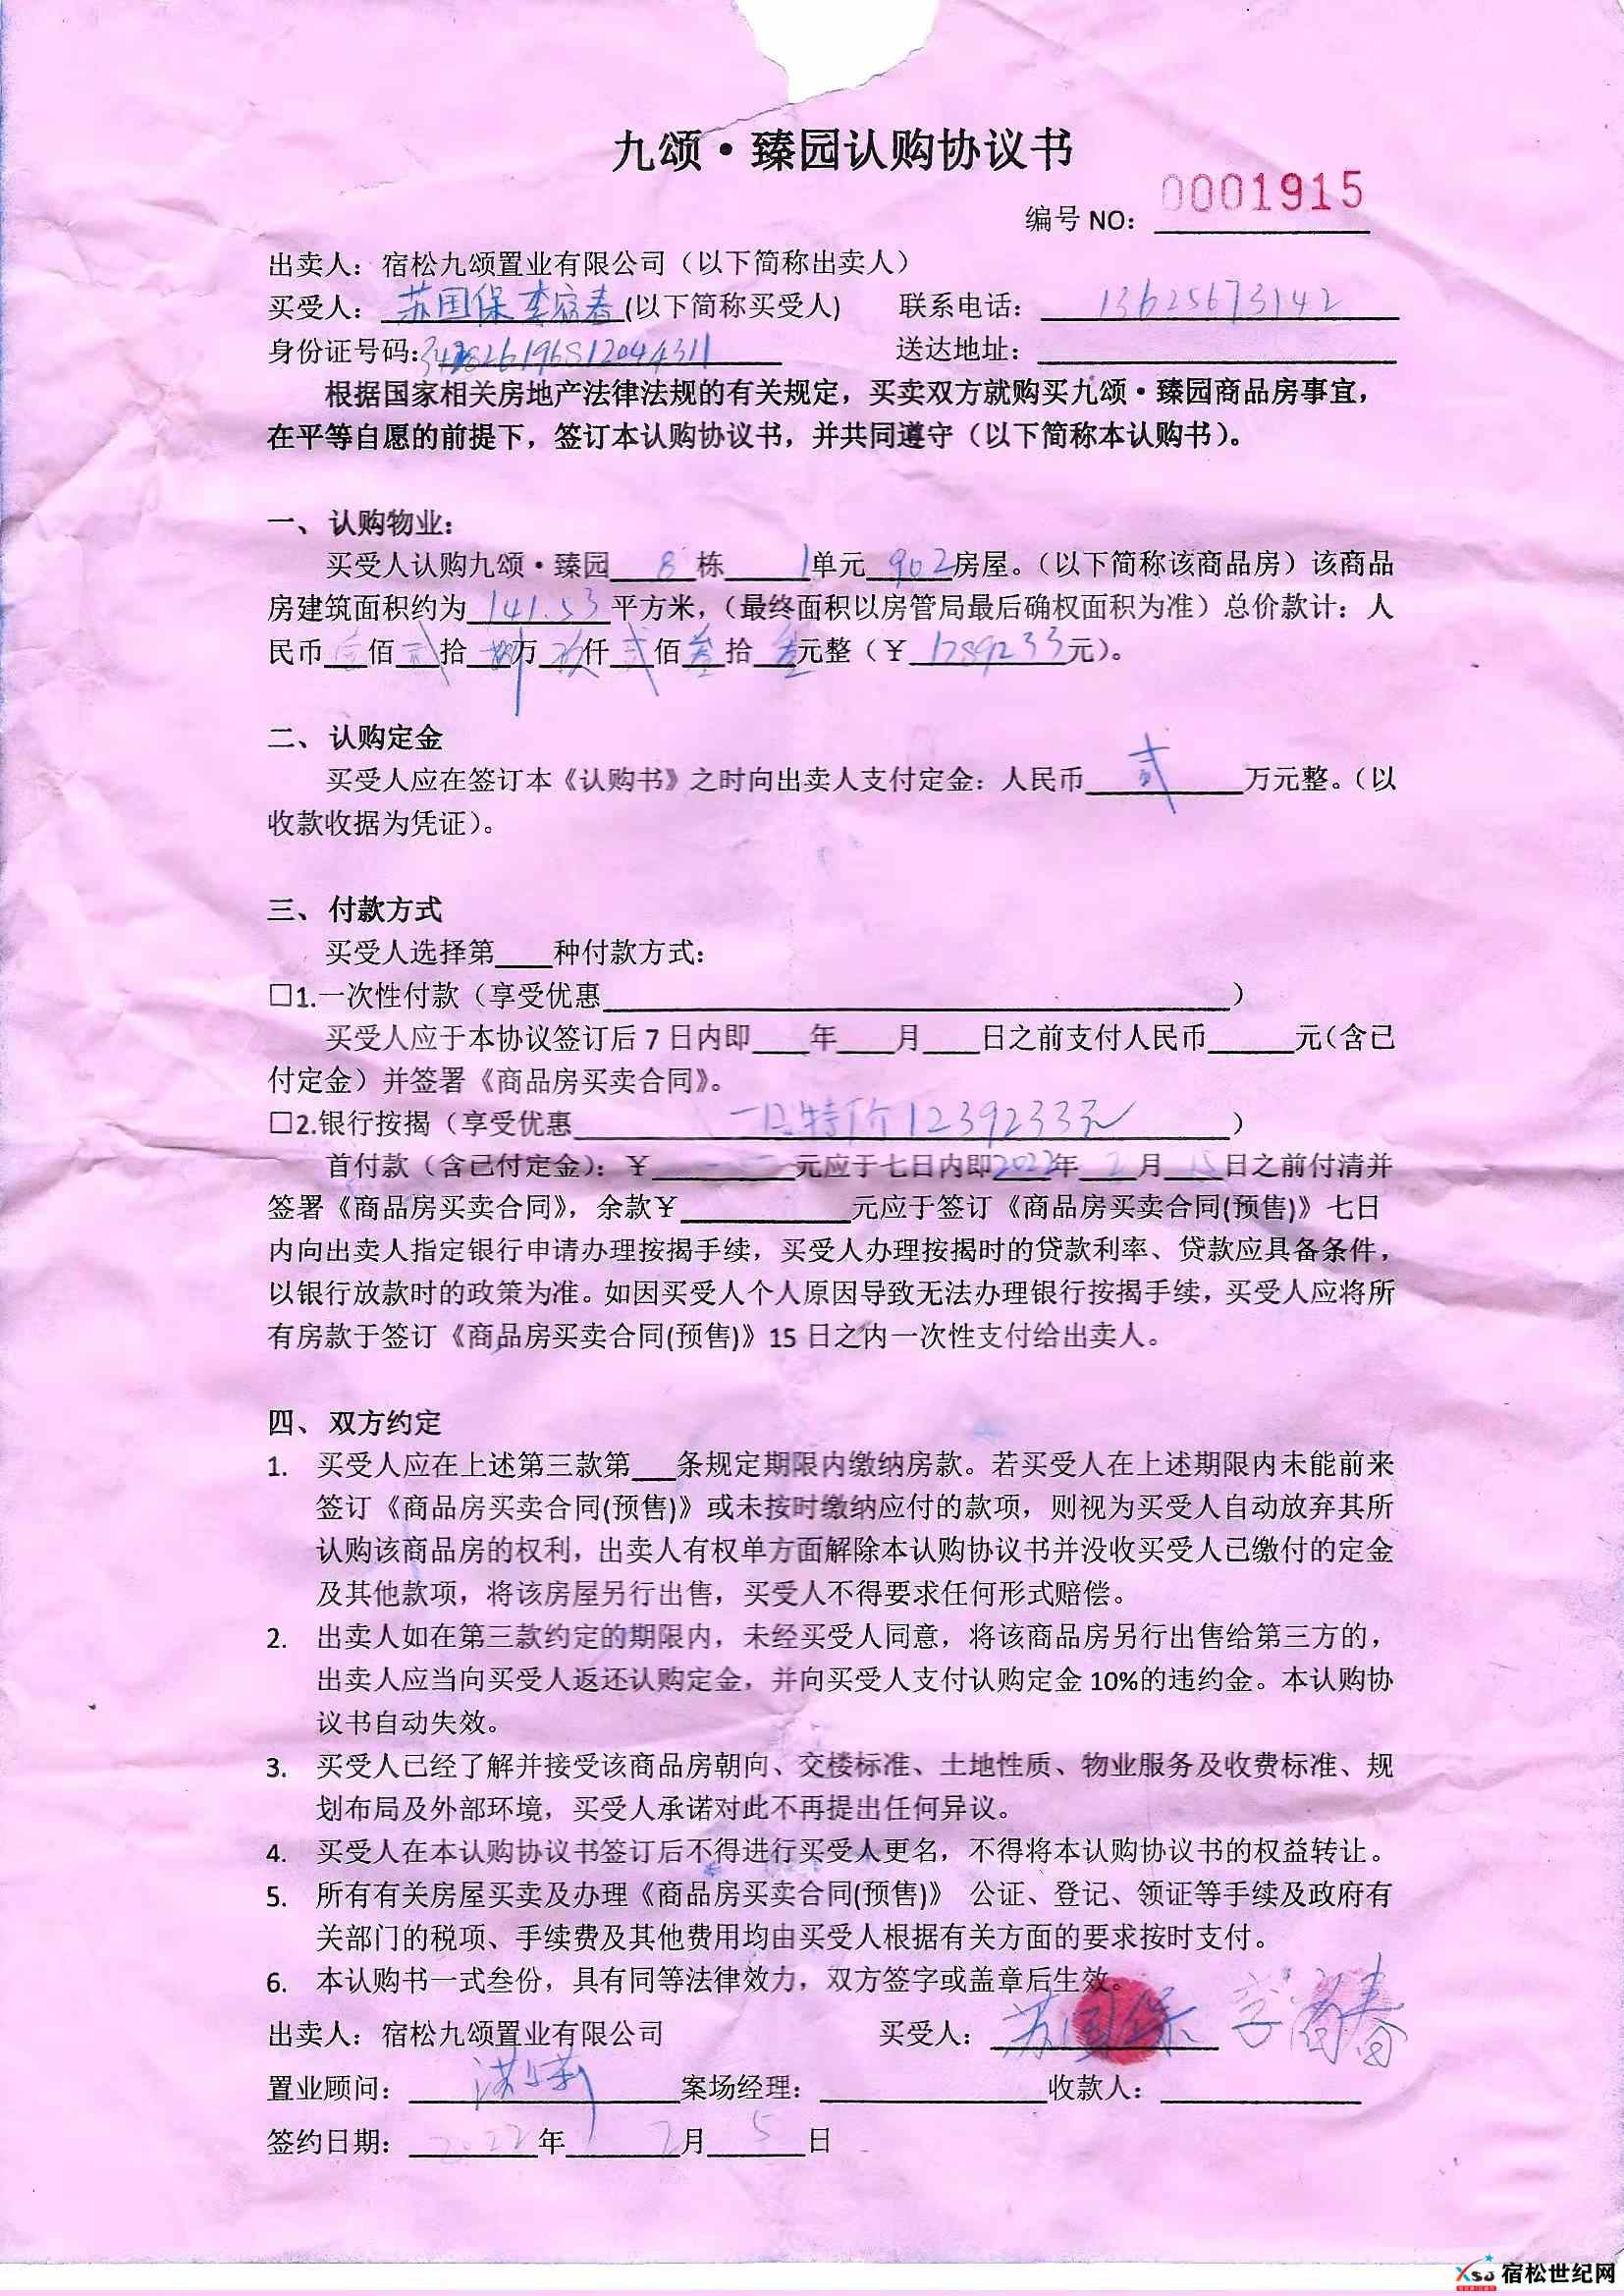 九颂·臻园认购协议书
编号 NO： 0001915
出卖人：宿松九颂置业有限公司（以下简称出卖人）
买受人：苏国保 李宿春(以下简称买受人) 联系电话：13625673142
身份证号码： 送达地址：
根据国家相关房地产法律法规的有关规定，买卖双方就购买九颂·臻园商品房事宜，
在平等自愿的前提下，签订本认购协议书，并共同遵守（以下简称本认购书）。
一、 认购物业：
买受人认购九颂·臻园 8 栋 1 单元 902 房屋。（以下简称该商品房）该商品
房建筑面积约为 141.53 平方米，（最终面积以房管局最后确权面积为准）总价款计：人
民币 佰 贰 拾 万 玖 仟 贰 佰 叁 拾 叁 元整（￥ 元）。
二、 认购定金
买受人应在签订本《认购书》之时向出卖人支付定金：人民币 贰 万元整。（以
收款收据为凭证）。
三、 付款方式
买受人选择第 种付款方式：
□1.一次性付款（享受优惠 ）
买受人应于本协议签订后 7 日内即 年 月 日之前支付人民币 元（含已
付定金）并签署《商品房买卖合同》。
□2.银行按揭（享受优惠 一口特价1239233元 ）
首付款（含已付定金）：￥ 元应于七日内即2022年 2 月 15 日之前付清并
签署《商品房买卖合同》，余款￥ 元应于签订《商品房买卖合同(预售)》七日
内向出卖人指定银行申请办理按揭手续，买受人办理按揭时的贷款利率、贷款应具备条件，
以银行放款时的政策为准。如因买受人个人原因导致无法办理银行按揭手续，买受人应将所
有房款于签订《商品房买卖合同(预售)》15 日之内一次性支付给出卖人。
四、 双方约定
1. 买受人应在上述第三款第 条规定期限内缴纳房款。若买受人在上述期限内未能前来
签订《商品房买卖合同(预售)》或未按时缴纳应付的款项，则视为买受人自动放弃其所
认购该商品房的权利，出卖人有权单方面解除本认购协议书并没收买受人已缴付的定金
及其他款项，将该房屋另行出售，买受人不得要求任何形式赔偿。
2. 出卖人如在第三款约定的期限内，未经买受人同意，将该商品房另行出售给第三方的，
出卖人应当向买受人返还认购定金，并向买受人支付认购定金 10%的违约金。本认购协
议书自动失效。
3. 买受人已经了解并接受该商品房朝向、交楼标准、土地性质、物业服务及收费标准、规
划布局及外部环境，买受人承诺对此不再提出任何异议。
4. 买受人在本认购协议书签订后不得进行买受人更名，不得将本认购协议书的权益转让。
5. 所有有关房屋买卖及办理《商品房买卖合同(预售)》 公证、登记、领证等手续及政府有
关部门的税项、手续费及其他费用均由买受人根据有关方面的要求按时支付。
6. 本认购书一式叁份，具有同等法律效力，双方签字或盖章后生效。
出卖人：宿松九颂置业有限公司 买受人：苏国保 李宿春
置业顾问： 案场经理： 收款人：
签约日期： 2022 年 2 月 5 日
宿松世纪网